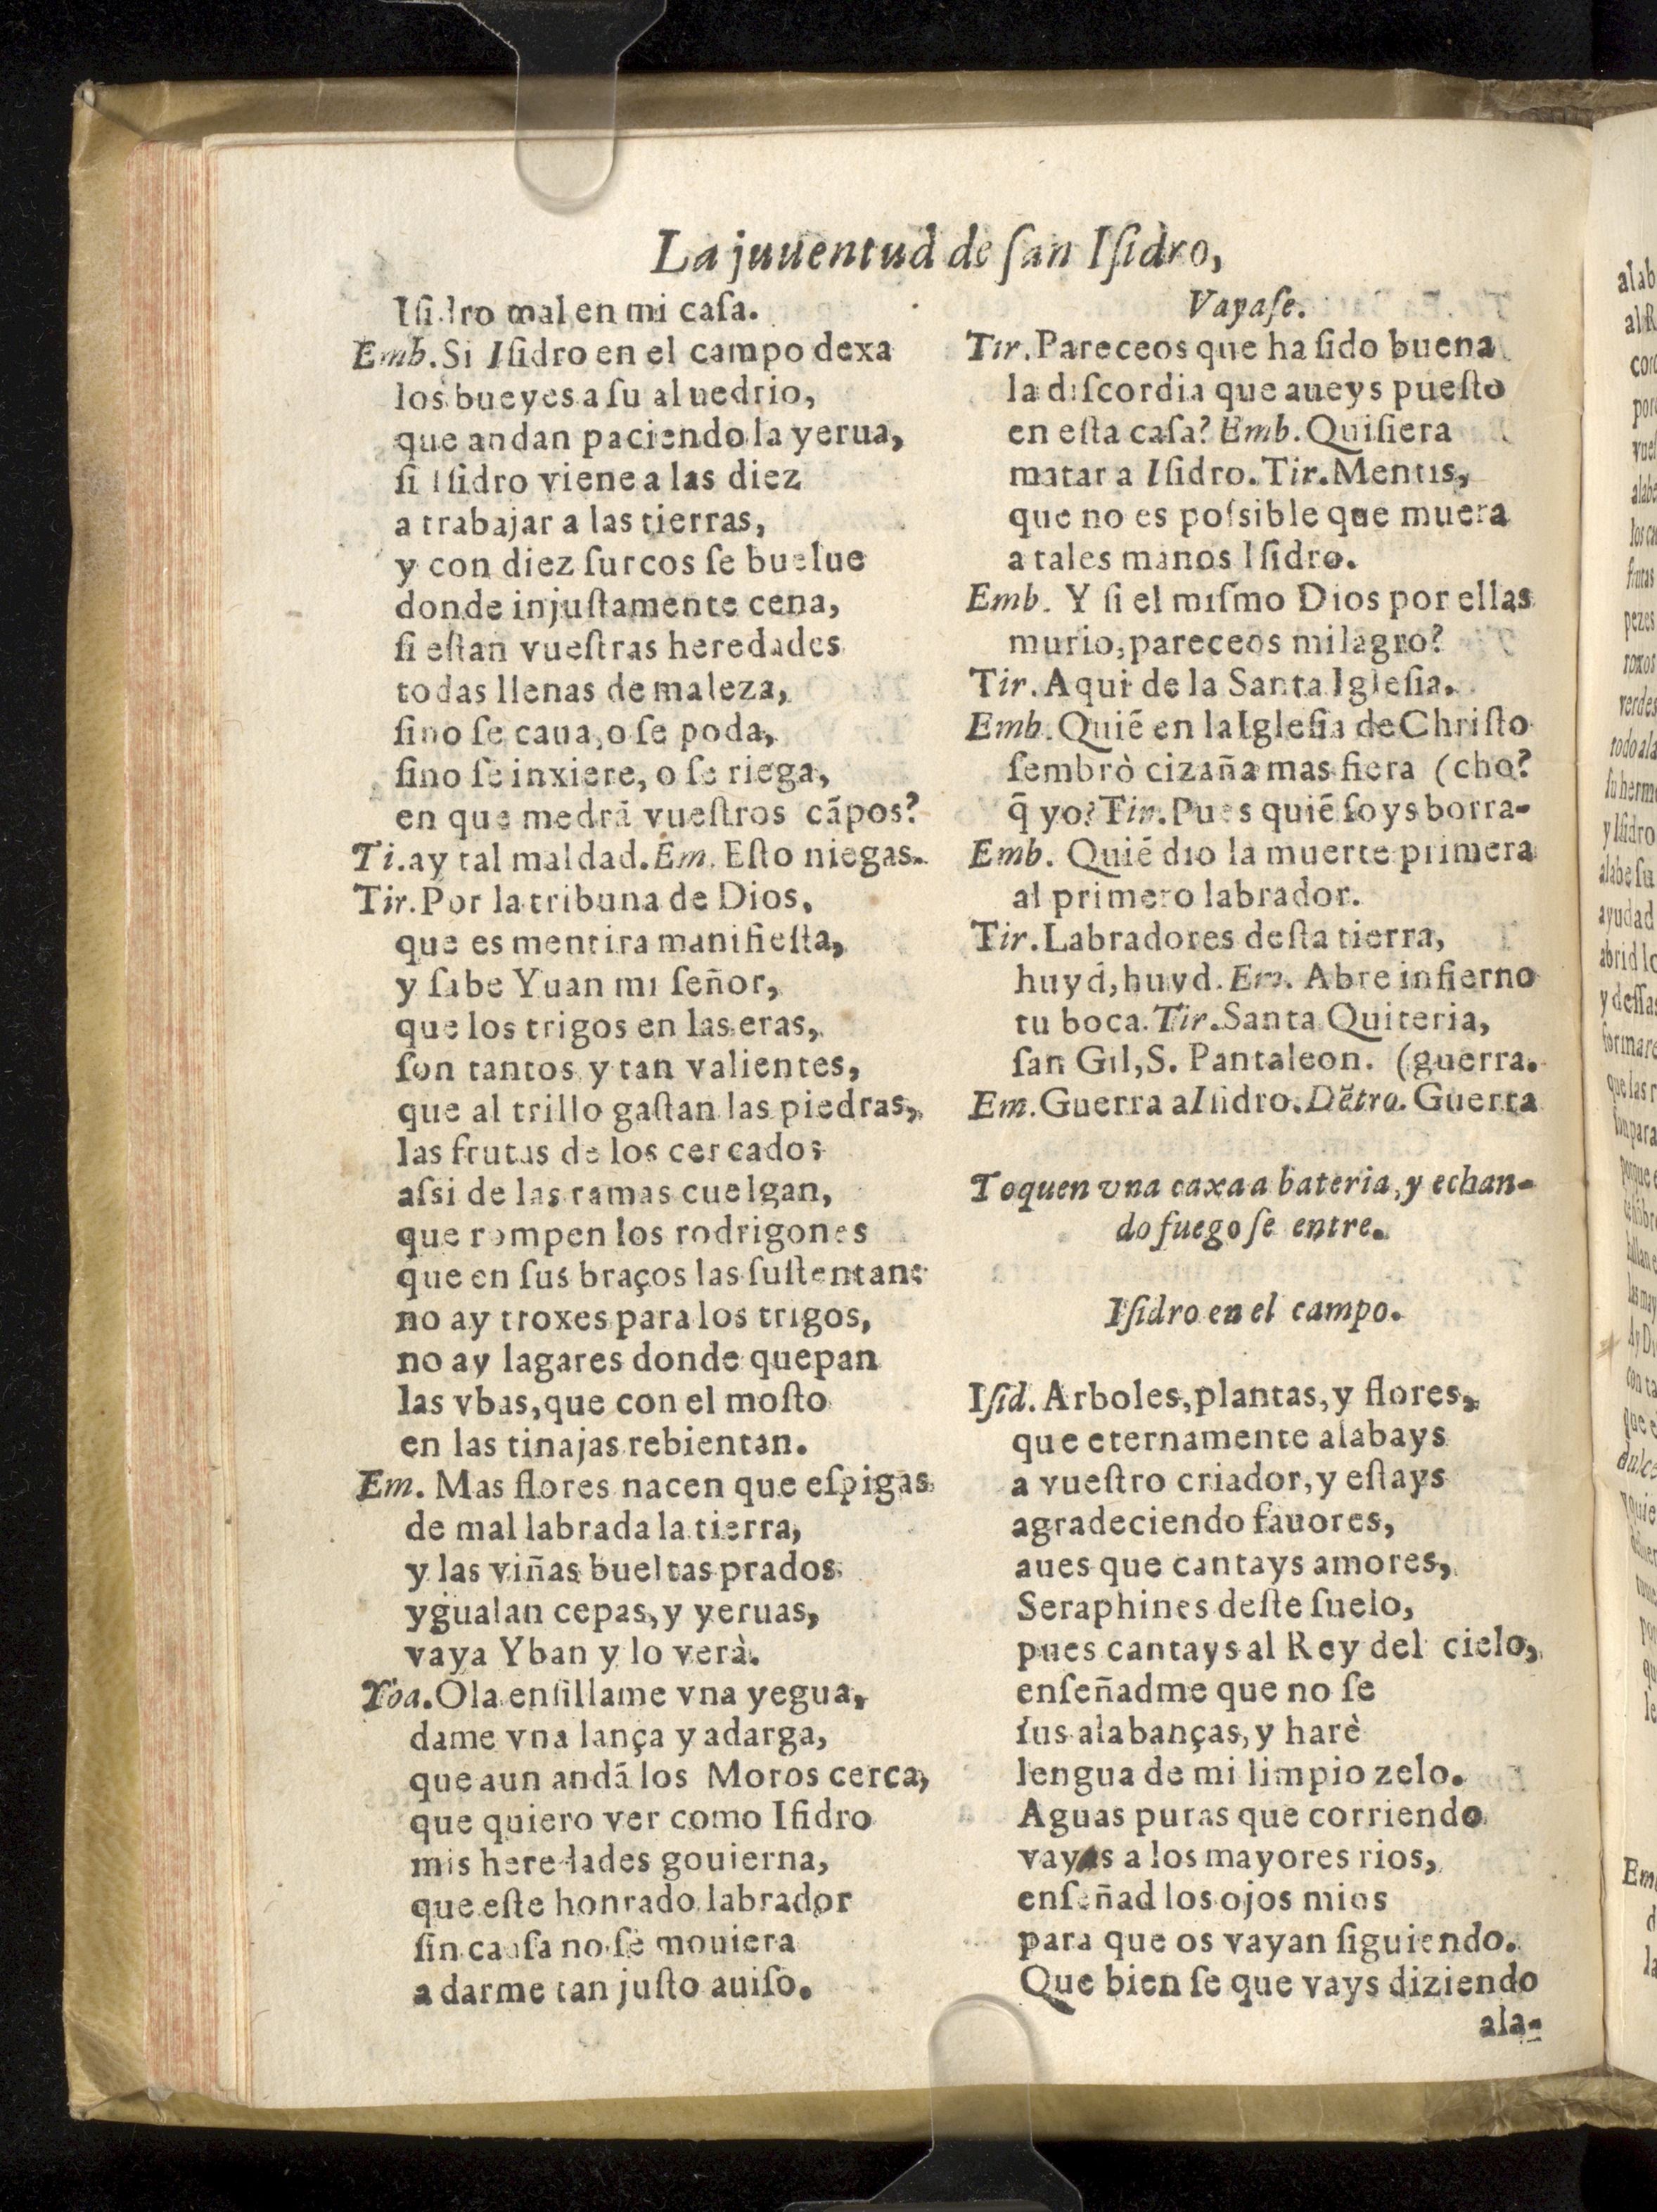 La juuentud de ſan Iſidro,
Iſidro mal en mi caſa.
Emb. Si Iſidro en el campo dexa
los bueyes a ſu aluedrio,
que andan paciendo la yerua,
ſi Iſidro viene a las diez
a trabajar a las tierras,
y con diez ſurcos ſe buelue
donde injuſtamente cena,
ſi eſtan vueſtras heredades
todas llenas de maleza,
ſino ſe caua, o ſe poda,
ſino ſe inxiere, o ſe riega,
en que medrã vueſtros cãpos?
Ti. ay tal maldad. Em. Eſto niegas.
Tir. Por la tribuna de Dios,
que es mentira manifieſta,
y ſabe Yuan mi ſeñor,
que los trigos en las eras,
ſon tantos y tan valientes,
que al trillo gaſtan las piedras,
las frutas de los cercados
aſsi de las ramas cuelgan,
que rompen los rodrigones
que en ſus braços las ſuſtentan:
no ay troxes para los trigos,
no ay lagares donde quepan
las vbas, que con el moſto
en las tinajas rebientan.
Em. Mas flores nacen que eſpigas
de mal labrada la tierra,
y las viñas bueltas prados
ygualan cepas, y yeruas,
vaya Yban y lo verà.
Yoa. Ola enſillame vna yegua,
dame vna lança y adarga,
que aun andã los Moros cerca,
que quiero ver como Iſidro
mis heredades gouierna,
que eſte honrado labrador
ſin cauſa no ſe mouiera
a darme tan juſto auiſo.
Vayaſe.
Tir. Pareceos que ha ſido buena
la diſcordia que aueys pueſto
en eſta caſa? Emb. Quiſiera
matar a Iſidro. Tir. Mentis,
que no es poſsible que muera
a tales manos Iſidro.
Emb. Y ſi el miſmo Dios por ellas
murio, pareceos milagro?
Tir. Aqui de la Santa Igleſia.
Emb. Quiẽ en la Igleſia de Chriſto
ſembrò cizaña mas fiera (cho?
q̃ yo? Tir. Pues quiẽ ſoys borra-
Emb. Quiẽ dio la muerte primera
al primero labrador.
Tir. Labradores deſta tierra,
huyd, huyd. Em. Abre infierno
tu boca. Tir. Santa Quiteria,
ſan Gil, S. Pantaleon. (guerra.
Em. Guerra a Iſidro. Dẽtro. Guerra
Toquen vna caxa a bateria, y echan-
do fuego ſe entre.
Iſidro en el campo.
Iſid. Arboles, plantas, y flores,
que eternamente alabays
a vueſtro criador, y eſtays
agradeciendo fauores,
aues que cantays amores,
Seraphines deſte ſuelo,
pues cantays al Rey del cielo,
enſeñadme que no ſe
ſus alabanças, y harè
lengua de mi limpio zelo.
Aguas puras que corriendo
vays a los mayores rios,
enſeñad los ojos mios
para que os vayan ſiguiendo.
Que bien ſe que vays diziendo
ala-